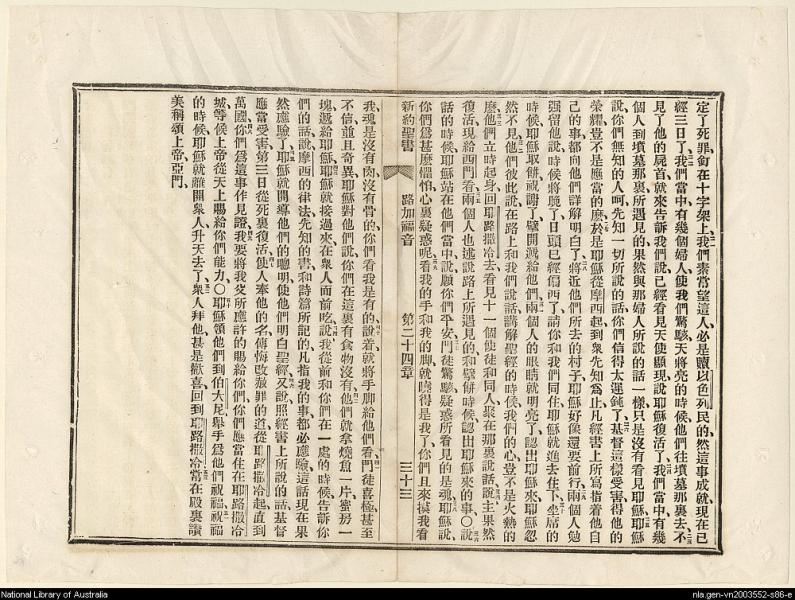 定了死罪釘在十字架上我們素常望這人必是贖以色列民的然這事成就現在已
經三日了我們當中有幾個婦人使我們驚駭天將亮的時候他們往墳墓那裏去不
見了他的屍首就來告訴我們說已經看見天使顯現說耶穌復活了我們當中有幾
個人到墳墓那裏所遇見的果然與那婦人所說的話一樣只是沒有看見耶穌耶穌
說你們無知的人呵先知一切所說的話你們信得大遲鈍了基督這樣受害得他的
榮耀豈不是應當的麼於是耶穌從摩西起到衆先知爲止凡經書上所寫指着他自
己的事都向他們詳解明白了將近他們所去的村子耶穌好像還要前行兩個人勉
强留他說時候將晚了日頭已經偏西了請你和我們同住耶穌就進去住下坐席的
時候耶穌取餅祝謝了擘開遞給他們兩個人的眼睛就明亮了認出耶穌來耶穌忽
然不見他們彼此說在路上和我們說話講解聖經的時候我們的心豈不是火熱的
麼他們立時起身回耶路撒冷去看見十一個使徒和同人聚在那裏說話說主果然
復活現給西門看兩個人也述說路上所遇見的和擘餅時候認出耶穌來的事〇說
話的時候耶穌站在他們當中說願你們平安門徒驚駭疑惑所看見的是魂耶穌說
你們爲甚麼懼怕心裏疑惑呢看我的手和我的脚就曉得是我了你們且來摸我看
新約聖書 路加福音 第二十四章 三十三
我魂是沒有肉沒有骨的你們看我是有的說着就將手脚給他們看門徒喜極甚至
不信並且奇異耶穌對他們說你們在這裏有食物沒有他們就拿燒魚一片蜜房一
塊遞給耶穌耶穌就接過來在衆人面前吃說我從前和你們在一處的時候告訴你
們的話說摩西的律法先知的書和詩篇所記的凡指我的事都必應驗這話現在果
然應驗了耶穌就開導他們的聰明使他們明白聖經又說照經書上所說的話基督
應當受害第三日從死裏復活使人奉他的名傳悔改赦罪的道從耶路撒冷起直到
萬國你們爲這事作見證我要將我父所應許的賜給你們你們應當住在耶路撒冷
城等候上帝從天上賜給你們能力〇耶穌領他們到伯大尼舉手爲他們祝福祝福
的時候耶穌就離開衆人升天去了衆人拜他甚是歡喜回到耶路撒冷常在殿裏讚
美稱頌上帝亞門
National Library of Australia
nla.gen-vn2003552-s86-e